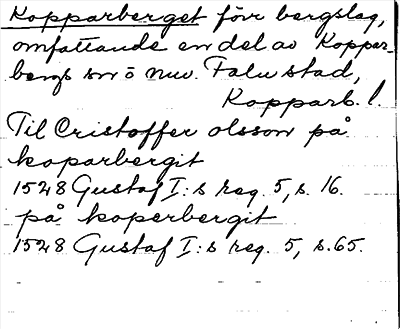 Kopparberget förr bergslag,
omfattande en del av Koppar-
bergs sn o nuv. Falu stad,
Kopparb. l.
Til Cristoffer olsson på
koparbergit
1528 Gustaf I:s reg. 5, s. 16.
på koperbergit
1528 Gustaf I:s reg. 5, s. 65.